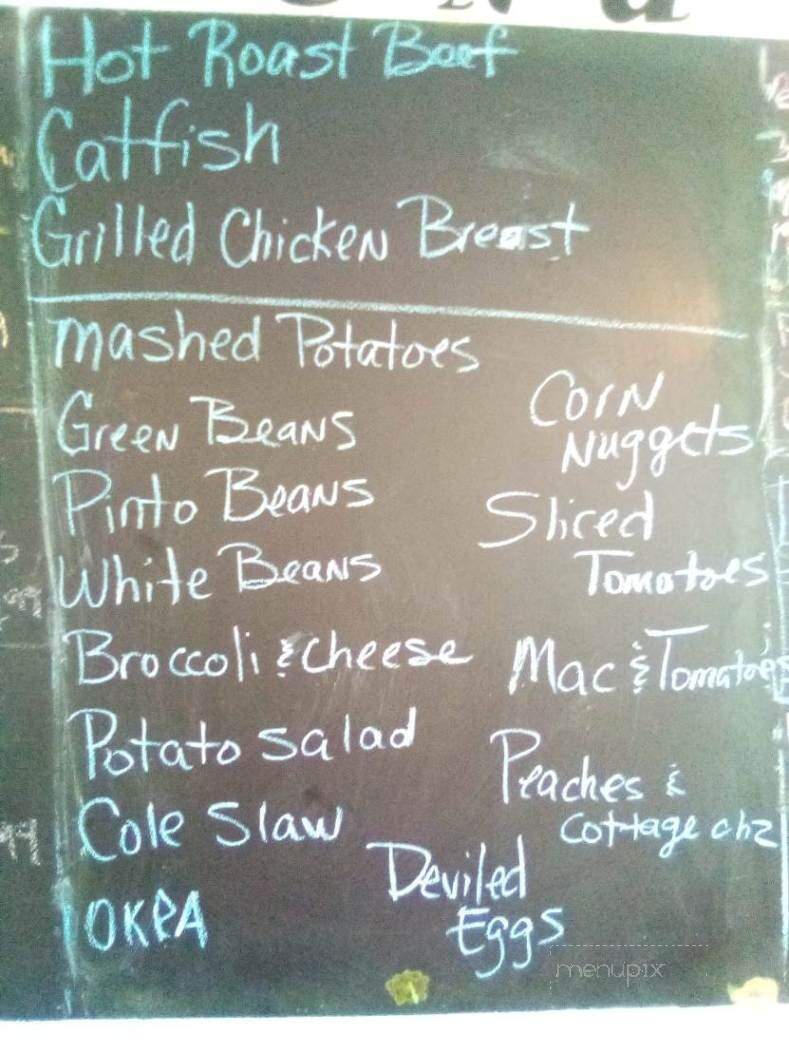 Hot Roast Beef
Catfish
Grilled Chicken Breast
Mashed Potatoes
Green Beans
Pinto Beans
White Beans
Broccoli & Cheese
Potato Salad
Cole Slaw
OKRA
Corn
Nuggets
Sliced
Tomatoes
Mac & Tomatoes
Peaches &
Cottage chz
Deviled
Eggs
menupix